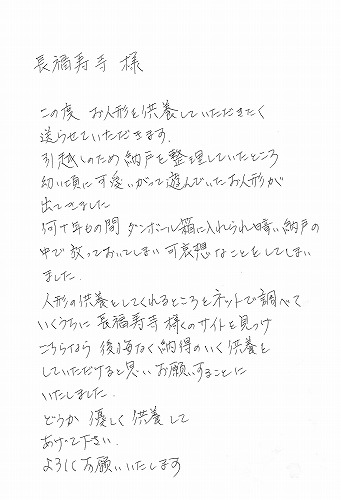 長福寿寺 様
この度 お人形を供養していただきたく
送らせていただきます.
引越しのため納戸を整理していたところ
幼い頃に可愛いがって遊んでいたお人形が
出てきました
何十年もの間 ダンボール箱に入れられ暗い納戸の
中で放っておいてしまい可哀想なことをしてしまい
ました.
人形の供養をしてくれるところをネットで調べて
いくうちに長福寿寺様のサイトを見つけ
こちらなら 後悔なく納得のいく供養を
していただけると思いお願いすることに
いたしました.
どうか 優しく供養して
あげて下さい.
よろしくお願いいたします